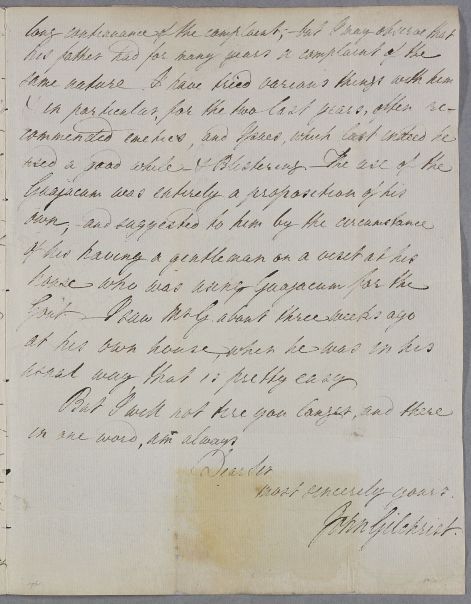 long continuance of the complaint, – but I may observe that
his father had for many years a complaint of the
same nature. I have tried various things with him
in particular, for the two last years, often re-
commended emetics, and Issues, which last indeed he
used a good while – & Blistering – The use of the
Guajacum was entirely a proposition of his
own, and suggested to him by the circumstance
of his having a gentleman on a visit at his
house who was using Guajacum for the
Gout – I saw Mr G. about three weeks ago
at his own house, when he was in his
usual way, that is pretty easy
But I will not tire you longer, and there
in one word, am always
Dear Sir
most sincerely yours.
John Gilchrist.